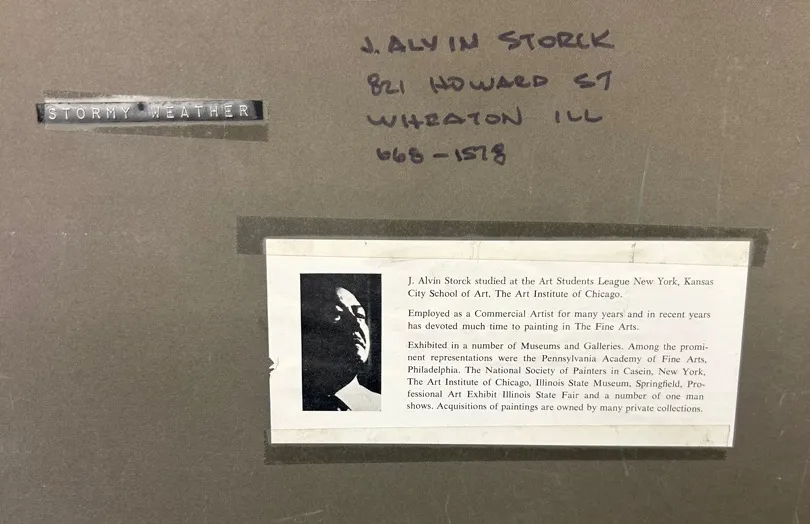 J. ALVIN STORCK
821 HOWARD ST
WHEATON ILL
668-1578
STORMY WEATHER
J. Alvin Storck studied at the Art Students League New York, Kansas
City School of Art, The Art Institute of Chicago.
Employed as a Commercial Artist for many years and in recent years
has devoted much time to painting in The Fine Arts.
Exhibited in a number of Museums and Galleries. Among the promi-
nent representations were the Pennsylvania Academy of Fine Arts,
Philadelphia. The National Society of Painters in Casein, New York,
The Art Institute of Chicago, Illinois State Museum, Springfield, Pro-
fessional Art Exhibit Illinois State Fair and a number of one man
shows. Acquisitions of paintings are owned by many private collections.